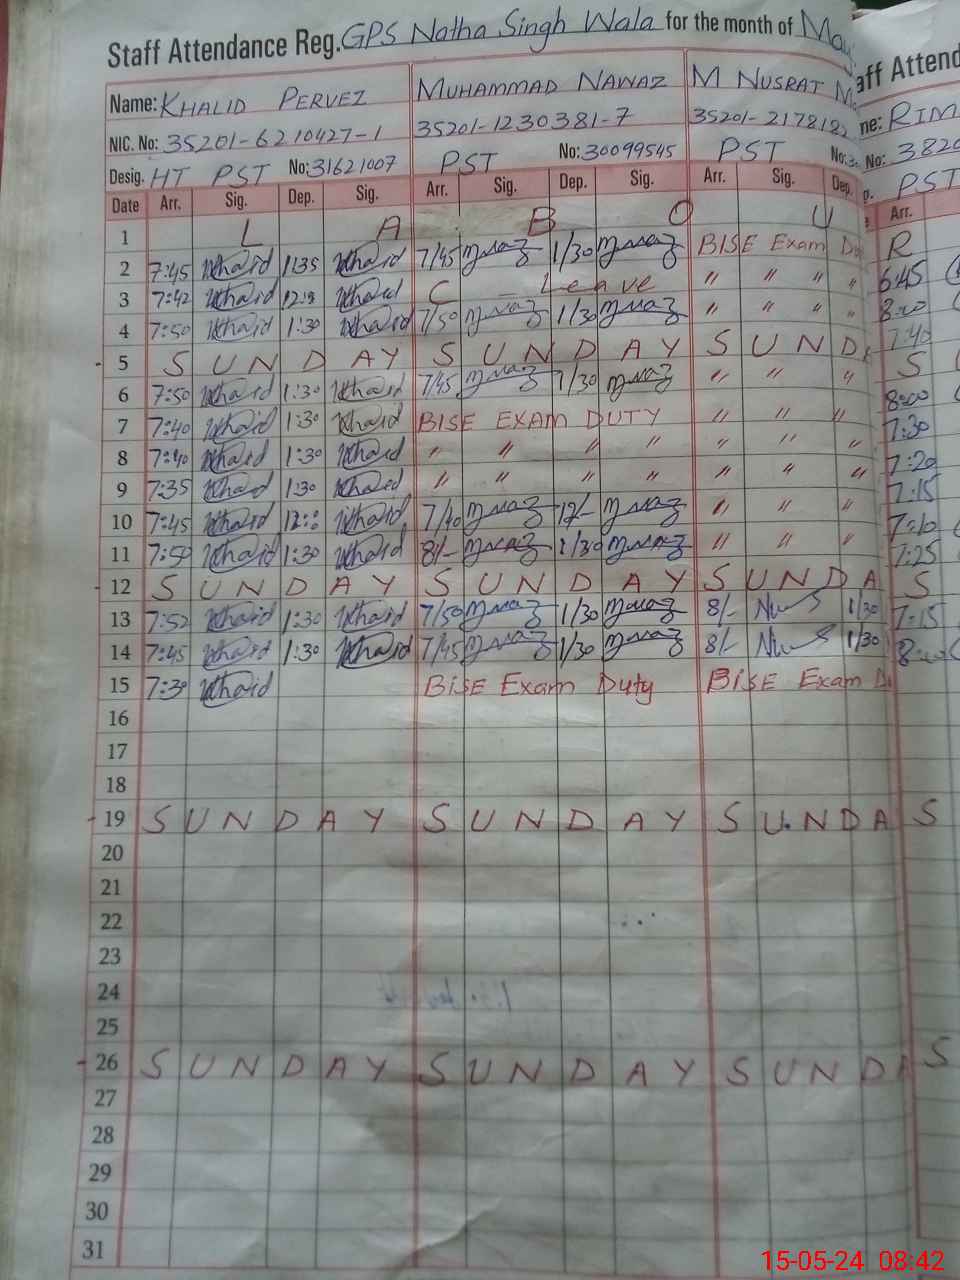 Staff Attendance Reg. GPS Natha Singh Wala for the month of May
aff Attend
Name: KHALID PERVEZ MUHAMMAD NAWAZ M NUSRAT
me: RIM
NIC. No: 35201-6210427-1 35201-1230381-7 35201-2178182
No: 3820
Desig. HT PST No: 31621007 PST No: 30099545 PST No:
PST
Date Arr. Sig. Dep. Sig. Arr. Sig. Dep. Sig. Arr. Sig. Dep.
Arr.
1 L A B O U R
2 7:45 Khalid 1:35 Khalid 7/45 Mnawaz 1/30 Mnawaz BISE Exam Du 6:45
3 7:42 Khalid Khalid C – Leave " " " " 8:00
4 7:50 Khalid 1:30 Khalid 7/50 Mnawaz 1/30 Mnawaz " " " " 7:40
5 S U N D A Y S U N D A Y S U N D S
6 7:50 Khalid 1:30 Khalid 7/45 Mnawaz 1/30 Mnawaz " " " 8:00
7 7:40 Khalid 1:30 Khalid BISE EXAM DUTY " " " 7:30
8 7:40 Khalid 1:30 Khalid " " " " " " " 7:20
9 7:35 Khalid 1:30 Khalid " " " " " " " 7:15
10 7:45 Khalid 12:00 Khalid 7/40 Mnawaz 12/- Mnawaz " " " 7:10
11 7:50 Khalid 1:30 Khalid 8/- Mnawaz 1/30 Mnawaz " " " 7:25
12 S U N D A Y S U N D A Y S U N D A S
13 7:52 Khalid 1:30 Khalid 7/50 Mnawaz 1/30 Mnawaz 8/- Nus 1/30 7:15
14 7:45 Khalid 1:30 Khalid 7/45 Mnawaz 1/30 Mnawaz 8/- Nus 1/30 8:00
15 7:30 Khalid BISE Exam Duty BISE Exam Du
16
17
18
19 S U N D A Y S U N D A Y S U N D A S
20
21
22
23
24
25
26 S U N D A Y S U N D A Y S U N D A S
27
28
29
30
31
15-05-24 08:42